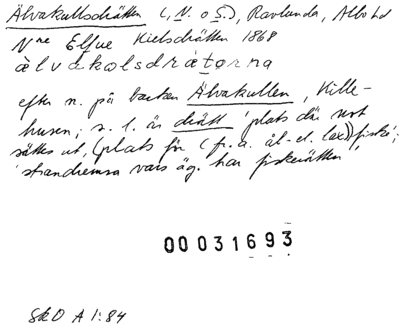 Älvakullsdrätten (, N. o S.), Ravlunda, Albo hd
Nre Elfve Kielsdrätten 1868
älvakolsdrätorna
efter n. på backen Älvakullen, Kille-
husen; s. l. är drätt 'plats där not
sättes ut, (plats för (fr. a. ål- el. lax))fiske';
'strandremsa vars äg. har fiskerätten'
00031693
SkO A 1:84